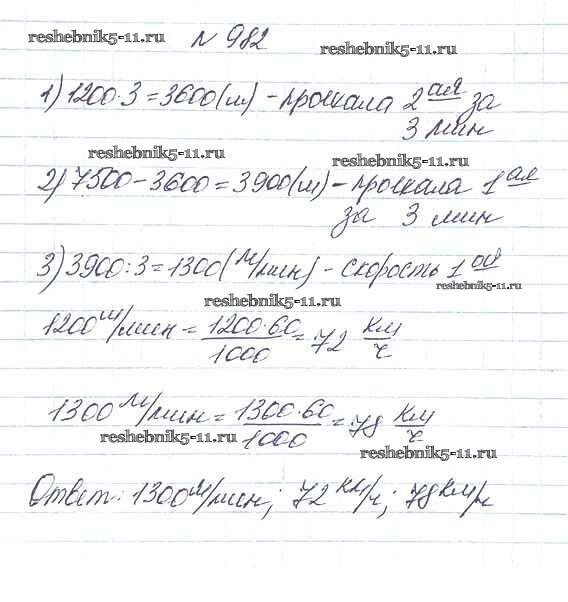 reshebnik5-11.ru
№ 982
reshebnik5-11.ru
1) 1200·3=3600(м) - проехала 2ая за
3 мин
reshebnik5-11.ru
reshebnik5-11.ru
2) 7500-3600=3900(м) - проехала 1ая
за 3 мин
3) 3900:3=1300(м/мин) - скорость 1ой
reshebnik5-11.ru
reshebnik5-11.ru
1200 м/мин = 1200·60/1000 = 72 км/ч
1300 м/мин = 1300·60/1000 = 78 км/ч
reshebnik5-11.ru
reshebnik5-11.ru
Ответ: 1300 м/мин; 72 км/ч; 78 км/ч
reshebnik5-11.ru